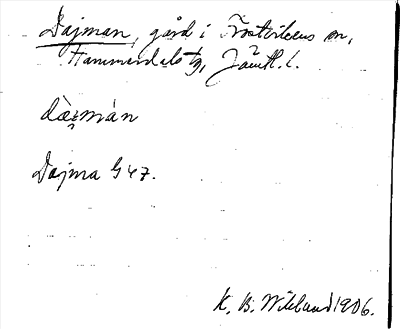 Dajman, gård i Frostvikens sn,
Hammerdals tg, Jämtl. l.
dài̯mán
Dajma G 47.
K. B. Wiklund 1906.